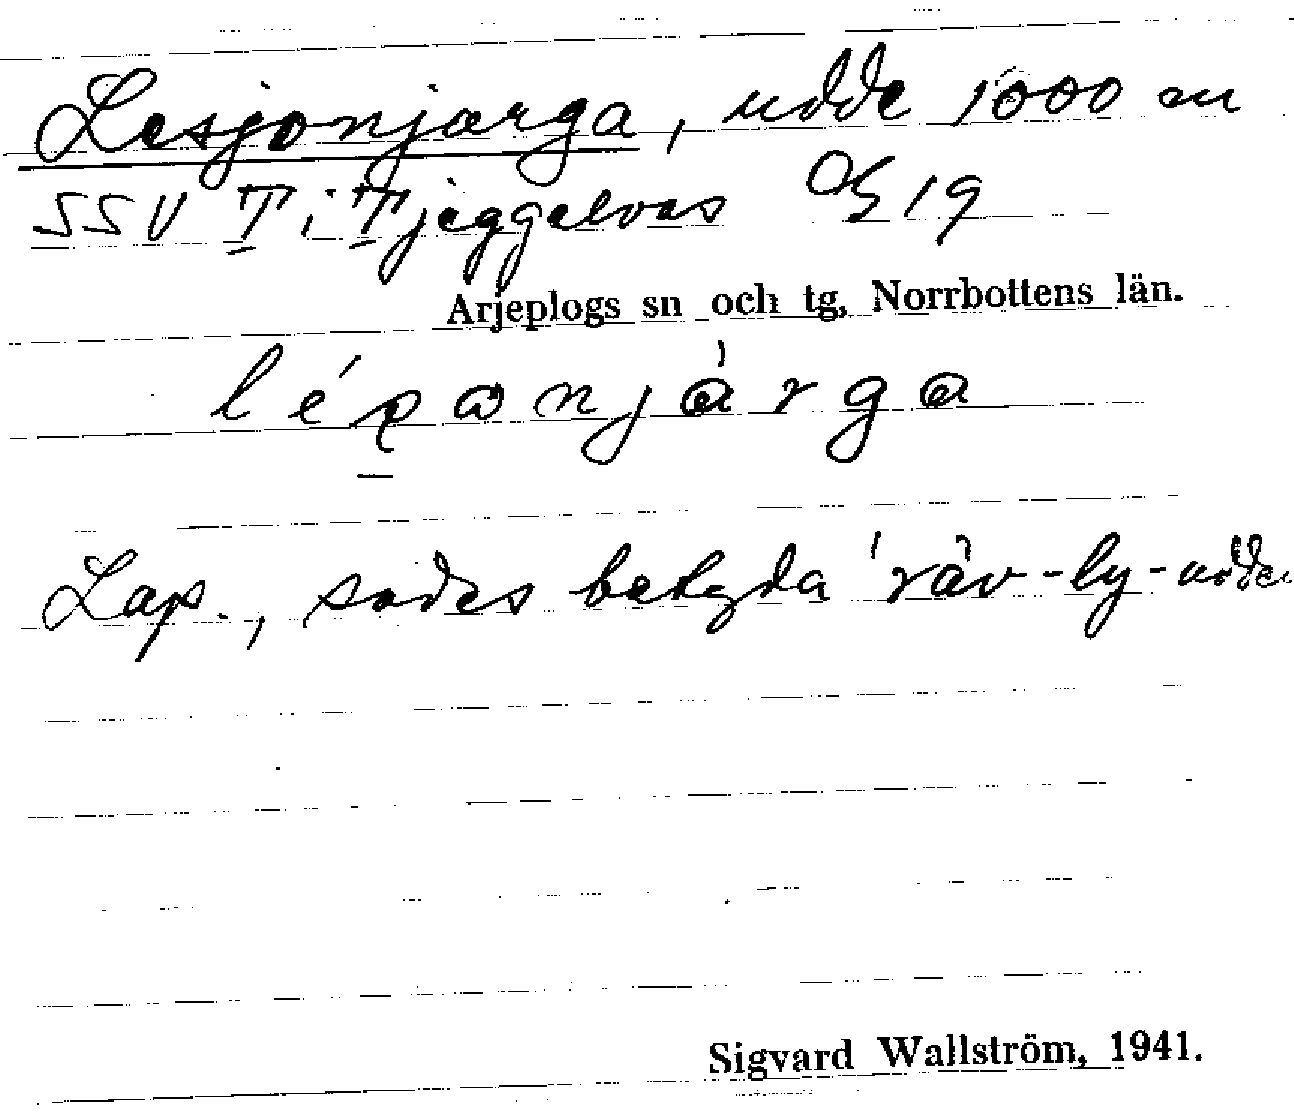 Lesjonjarga, udde 1000 m
SSV T i Tjeggelvas Ök 19
Arjeplogs sn och tg, Norrbottens län.
Lap., sades betyda 'räv-ly-udde
Sigvard Wallström, 1941.